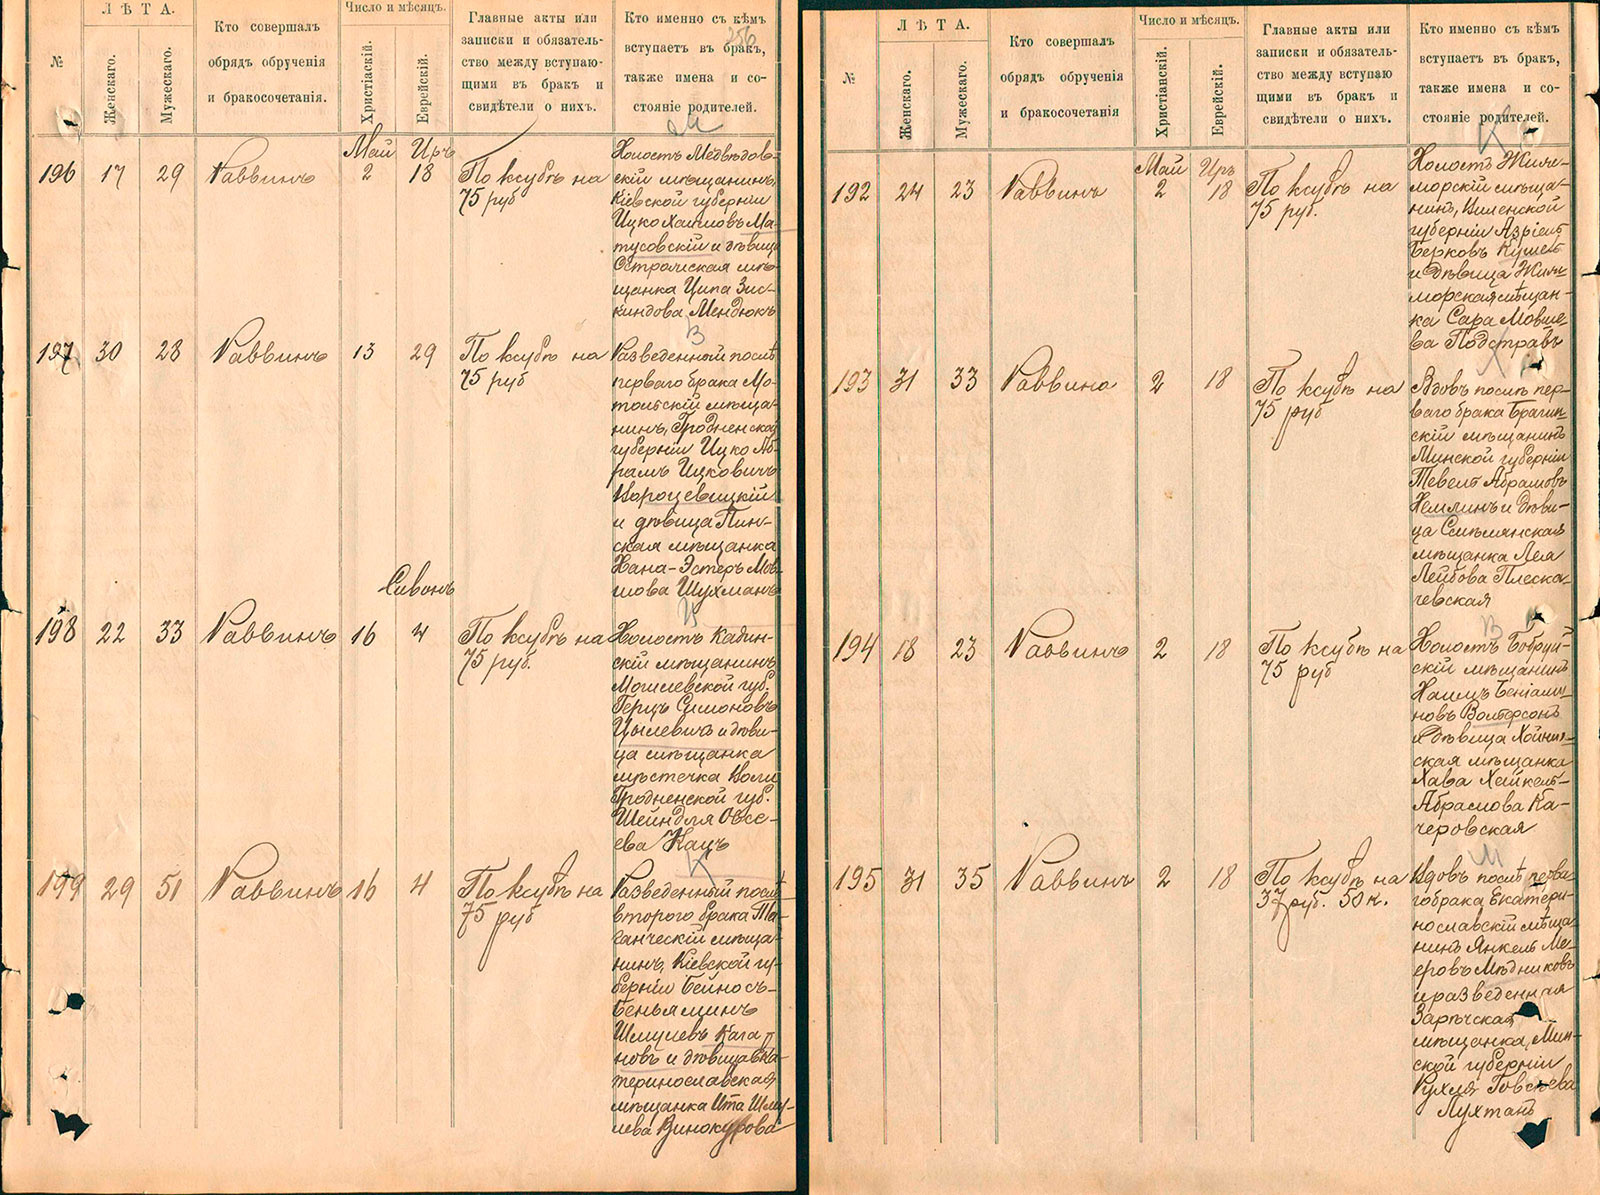 ЛѢТА.
Число и мѣсяцъ.
№
Женскаго.
Мужескаго.
Кто совершалъ
обрядъ обрученія
и бракосочетанія.
Христіаскій.
Еврейскій.
Главные акты или
записки и обязатель-
ство между вступаю-
щими въ бракъ и
свидѣтели о нихъ.
Кто именно съ кѣмъ
вступаетъ въ бракъ,
также имена и со-
стояніе родителей.
256
М
Май Иръ
196 17 29 Раввинъ 2 18
По ксубѣ на
75 руб
Холостъ Медвѣдов-
скій мѣщанинъ,
Кіевской губерніи
Ицко Хаимовъ Ма-
тусовскій и дѣвица
мѣ-
щанка Ципа Зис-
киндова Мендюкъ
В
197 30 28 Раввинъ 13 29
По ксубѣ на
75 руб
Разведенный послѣ
перваго брака Мо-
тольскій мѣща-
нинъ, Гродненской
губерніи Ицко Аб-
рамъ Ицковичъ
Вороцевицкій
и дѣвица Пин-
ская мѣщанка
Хана-Эстеръ Мов-
шова Шухманъ
Сивонъ
198 22 33 Раввинъ 16 4
По ксубѣ на
75 руб.
Холостъ Кадин-
скій мѣщанинъ
Могилевской губ.
Герцъ Симоновъ
Цылевичъ и дѣви-
ца мѣщанка
мѣстечка Воли
Гродненской губ.
Шейндля Овсе-
ева Кацъ
К
199 29 51 Раввинъ 16 4
По ксубѣ на
75 руб
Разведенный послѣ
второго брака Та-
ганческій мѣща-
нинъ, Кіевской гу-
берніи Бейносъ-
Беньяминъ
Шмулевъ Кага-
новъ и дѣвица Ека-
теринославская
мѣщанка Ита Шму-
лева Винокурова
ЛѢТА.
Число и мѣсяцъ.
№
Женскаго.
Мужескаго.
Кто совершалъ
обрядъ обрученія
и бракосочетанія
Христіанскій.
Еврейскій.
Главные акты или
записки и обязатель-
ство между вступаю
щими въ бракъ и
свидѣтели о нихъ.
Кто именно съ кѣмъ
вступаетъ въ бракъ,
также имена и со-
стояніе родителей.
К
Май Иръ
192 24 23 Раввинъ 2 18
По ксубѣ на
75 руб.
Холостъ Жиж-
морскій мѣща-
нинъ, Виленской
губерніи Азріель
Берковъ Кушель
и дѣвица Жиж-
морская мѣщан-
ка Сара Мовше-
ва Подставъ
193 31 33 Раввинъ 2 18
По ксубѣ на
75 руб
Вдовъ послѣ пер-
ваго брака Брагин-
скій мѣщанинъ
Минской губерніи
Тевель Абрамовъ
Хемлинъ и дѣви-
ца Смѣлянская
мѣщанка Леа
Лейбова Плеска-
чевская
В
194 18 23 Раввинъ 2 18
По ксубѣ на
75 руб
Холостъ Бобруй-
скій мѣщанинъ
Беніами-
новъ Вольфсонъ
и дѣвица Хойник-
ская мѣщанка
Хава Хейкель-
Абрамова Ка-
черовская
М
195 31 35 Раввинъ 2 18
По ксубѣ на
37 руб. 50 к.
Вдовъ послѣ перва-
го брака Екатери-
нославскій мѣща-
нинъ Янкель Ме-
еровъ Мѣдниковъ
и разведенная
Зарѣчская
мѣщанка, Мин-
ской губерніи
Рухля Говсѣева
Лухтанъ